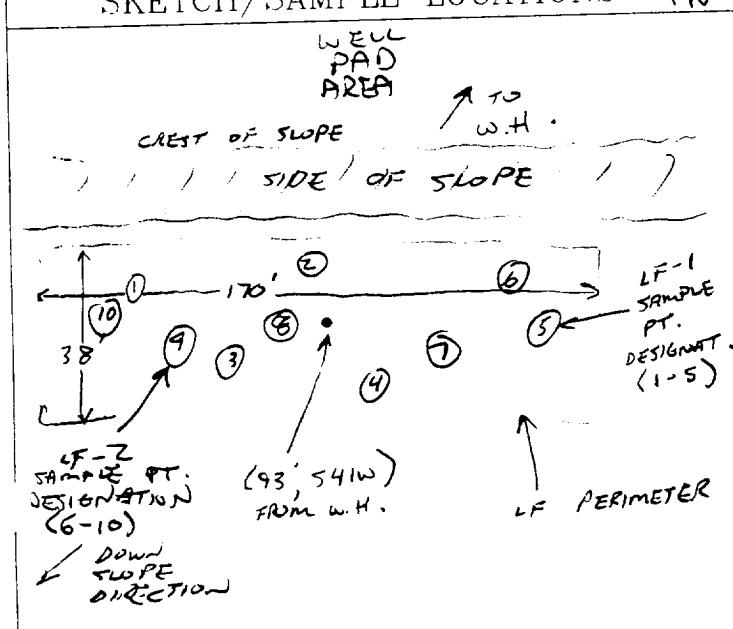 SKETCH/SAMPLE LOCATIONS
WELL
PAD
AREA
TO
W.H.
CREST OF SLOPE
SIDE OF SLOPE
2
6
1
170'
LF-1
SAMPLE
PT.
DESIGNAT.
(1-5)
10
8
5
9
3
7
38
4
LF-2
SAMPLE PT.
DESIGNATION
(6-10)
(93', S41W)
FROM W.H.
LF PERIMETER
DOWN
SLOPE
DIRECTION